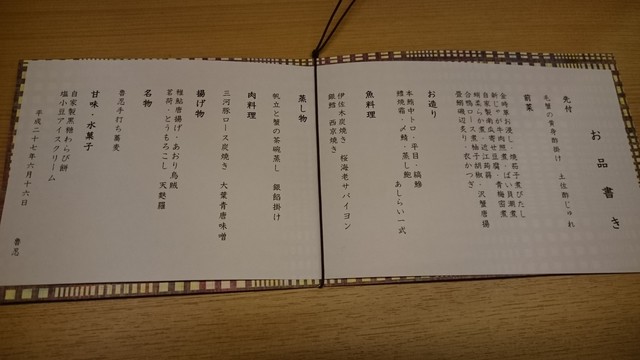 お品書き
先付
毛蟹の蟹身酢掛け 土佐酢じゅれ
前菜
金時草お浸し・焼茄子煮びたし
新じゃが牛肉照煮・ばい貝潮煮
自家製南瓜寄せ豆腐・青梅蜜煮
蛸柔らか煮・近江蒟蒻
合鴨ロース煮柚子胡椒・沢蟹唐揚
畳鯛磯辺炙り・衣かつぎ
お造り
本鮪中トロ・平目・縞鯵
鱧焼霜・〆鯖・蒸し鮑 あしらい一式
魚料理
伊佐木炭焼き 桜海老サバイヨン
銀鱈 西京焼き
蒸し物
帆立と蟹の茶碗蒸し 銀餡掛け
肉料理
三河豚ロース炭焼き 大葉青唐味噌
揚げ物
稚鮎唐揚げ・あおり烏賊
茗荷・とうもろこし 天麩羅
名物
魯忍手打ち蕎麦
甘味・水菓子
自家製黒糖わらび餅
塩小豆アイスクリーム
平成二十七年六月十六日
魯忍